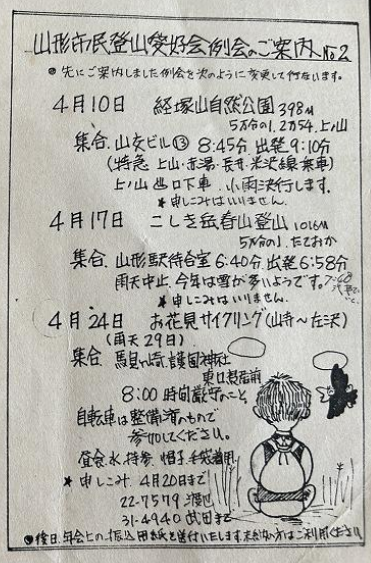 山形市民登山愛好会例会のご案内 No2
●先にご案内しました例会を次のように変更して行ないます。
4月10日 経塚山自然公園 398M
5万分の1.2万5千.上ノ山
集合 山交ビル⑬ 8:45分 出発9:10分
(特急 上山・赤湯・長井・米沢線乗車)
上ノ山 口下車 小雨決行します。
*申しこみはいりません。
4月17日 こしき岳春山登山 1016M
5万分の1.たておか
集合 山形駅待合室 6:40分.出発6:58分
雨天中止.今年は雪が多いようです。
*申しこみはいりません。
4月24日 お花見サイクリング(山寺〜左沢)
(雨天29日)
集合 馬見ヶ崎.護国神社
東口鳥居前
8:00 時間厳守のこと
自転車は整備済のもので
参加してください。
昼食.水.持参 帽子.手袋着用
*申しこみ 4月20日まで
22-7579 渡辺
31-4940 武田まで
●後日.年会上の.振込用紙を送付いたします.未納の方はご利用ください